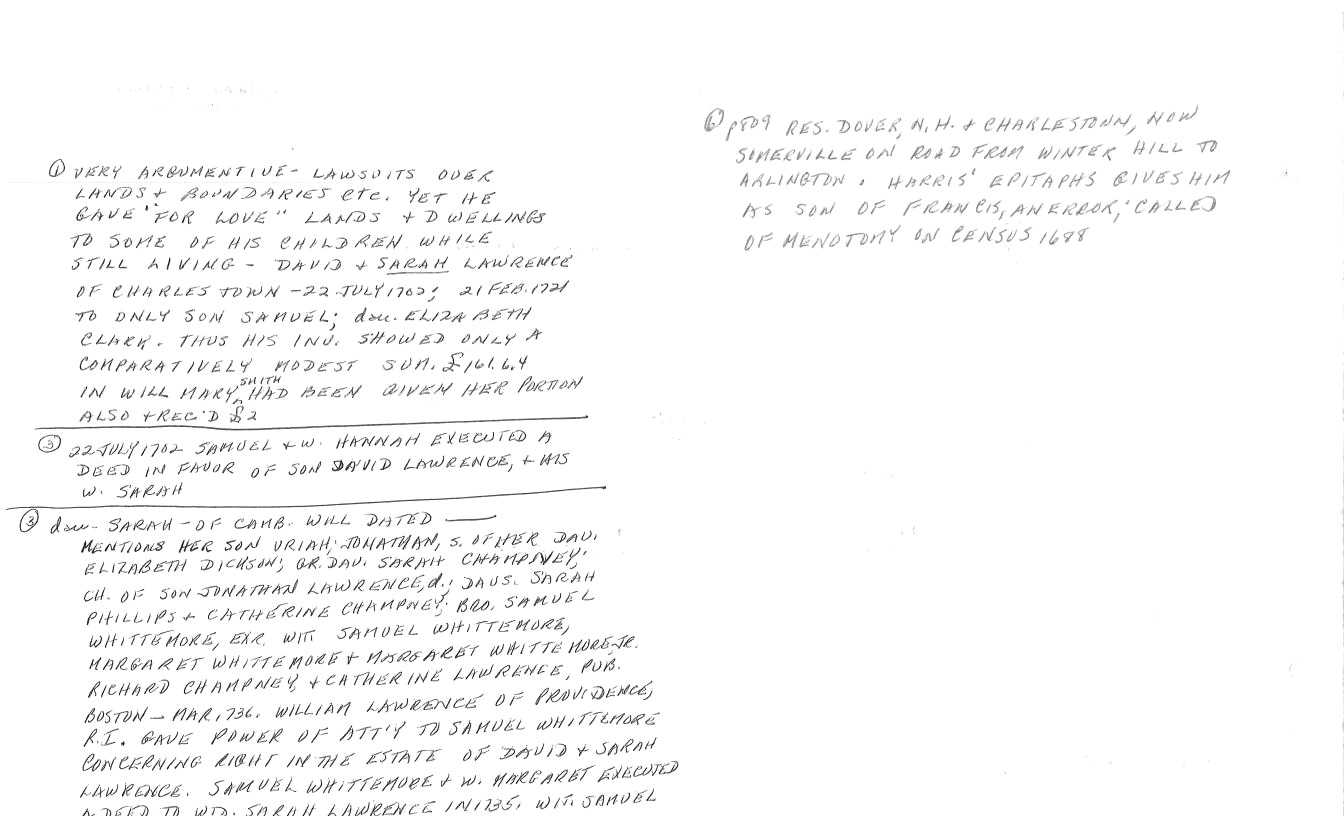 ① VERY ARGUMENTIVE - LAWSUITS OVER
LANDS + BOUNDARIES etc. YET HE
GAVE "FOR LOVE" LANDS + DWELLINGS
TO SOME OF HIS CHILDREN WHILE
STILL LIVING - DAVID + SARAH LAWRENCE
OF CHARLESTOWN - 22 JULY 1702; 21 FEB. 1721
TO ONLY SON SAMUEL; dau. ELIZABETH
CLARK. THUS HIS INV. SHOWED ONLY A
COMPARATIVELY MODEST SUM. £161.6.4
IN WILL MARY SMITH HAD BEEN GIVEN HER PORTION
ALSO + REC'D £2
22 JULY 1702 SAMUEL + W. HANNAH EXECUTED A
DEED IN FAVOR OF SON DAVID LAWRENCE, + HIS
W. SARAH
③ dau - SARAH - OF CAMB. WILL DATED ——
MENTIONS HER SON URIAH; JONATHAN, S. OF HER DAU.
ELIZABETH DICKSON; GR. DAU. SARAH CHAMPNEY;
CH. OF SON JONATHAN LAWRENCE, d.; DAUS. SARAH
PHILLIPS + CATHERINE CHAMPNEY; BRO. SAMUEL
WHITTEMORE, EXR. WIT. SAMUEL WHITTEMORE,
MARGARET WHITTEMORE + MARGARET WHITTEMORE JR.
RICHARD CHAMPNEY, + CATHERINE LAWRENCE, PUB.
BOSTON - MAR. 1736. WILLIAM LAWRENCE OF PROVIDENCE,
R.I. GAVE POWER OF ATT'Y TO SAMUEL WHITTEMORE
CONCERNING RIGHT IN THE ESTATE OF DAVID + SARAH
LAWRENCE. SAMUEL WHITTEMORE + W. MARGARET EXECUTED
A DEED TO WID. SARAH LAWRENCE IN 1735. WIT. SAMUEL
⑥ p809 RES. DOVER, N.H. + CHARLESTOWN, NOW
SOMERVILLE ON ROAD FROM WINTER HILL TO
ARLINGTON. HARRIS' EPITAPHS GIVES HIM
AS SON OF FRANCIS, AN ERROR; CALLED
OF MENOTOMY ON CENSUS 1688